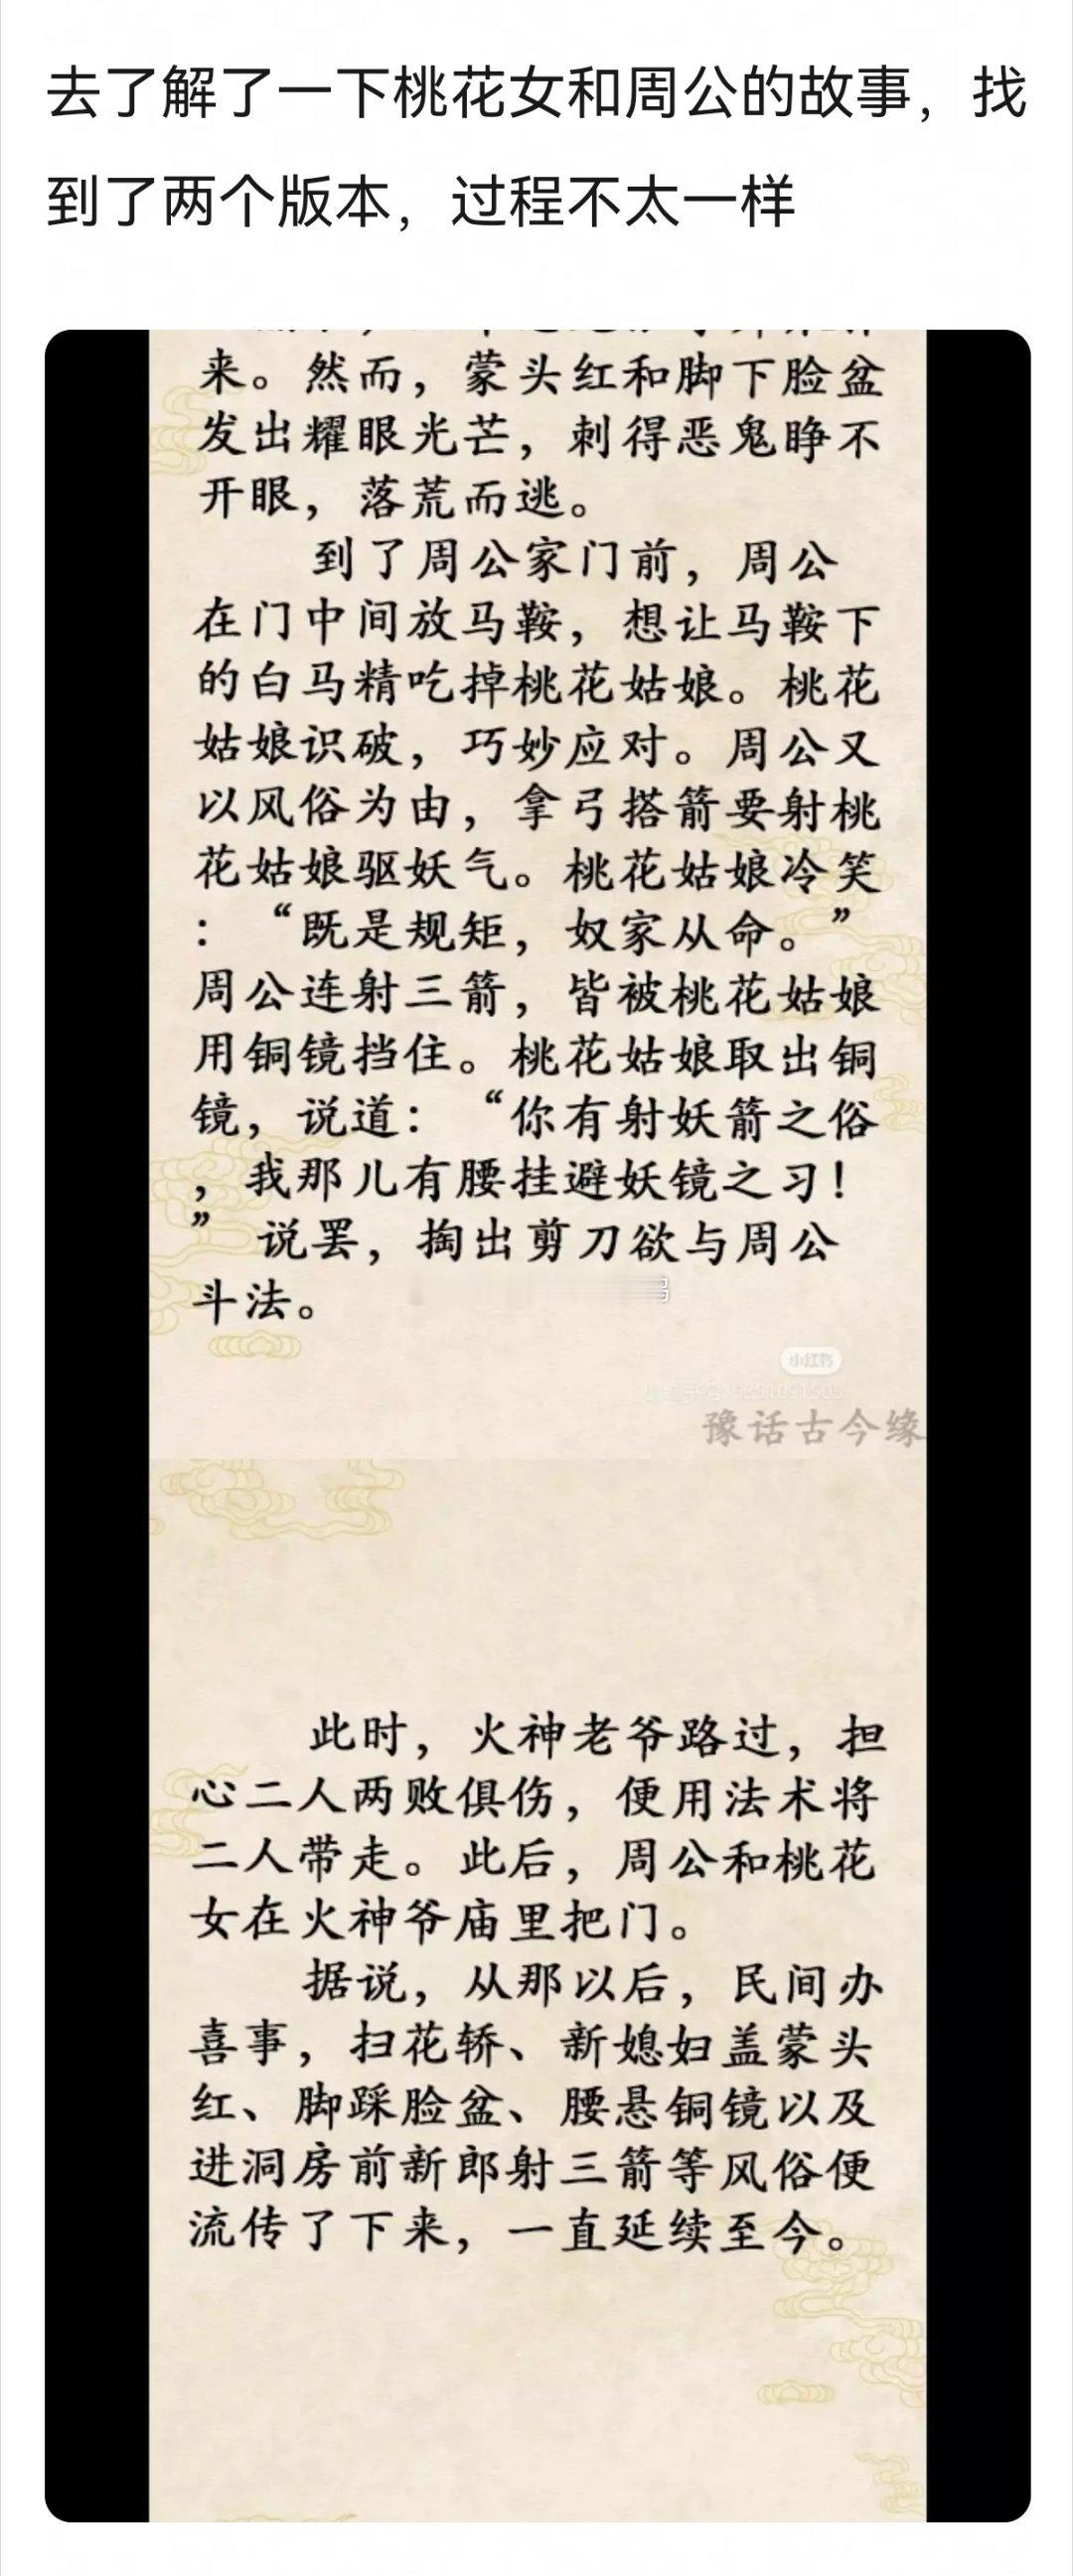 去了解了一下桃花女和周公的故事，找
到了两个版本，过程不太一样
来。然而，蒙头红和脚下脸盆
发出耀眼光芒，刺得恶鬼睁不
开眼，落荒而逃。
到了周公家门前，周公
在门中间放马鞍，想让马鞍下
的白马精吃掉桃花姑娘。桃花
姑娘识破，巧妙应对。周公又
以风俗为由，拿弓搭箭要射桃
花姑娘驱妖气。桃花姑娘冷笑
：“既是规矩，奴家从命。”
周公连射三箭，皆被桃花姑娘
用铜镜挡住。桃花姑娘取出铜
镜，说道：“你有射妖箭之俗
，我那儿有腰挂避妖镜之习！
”说罢，掏出剪刀欲与周公
斗法。
小红书
豫话古今缘
此时，火神老爷路过，担
心二人两败俱伤，便用法术将
二人带走。此后，周公和桃花
女在火神爷庙里把门。
据说，从那以后，民间办
喜事，扫花轿、新媳妇盖蒙头
红、脚踩脸盆、腰悬铜镜以及
进洞房前新郎射三箭等风俗便
流传了下来，一直延续至今。